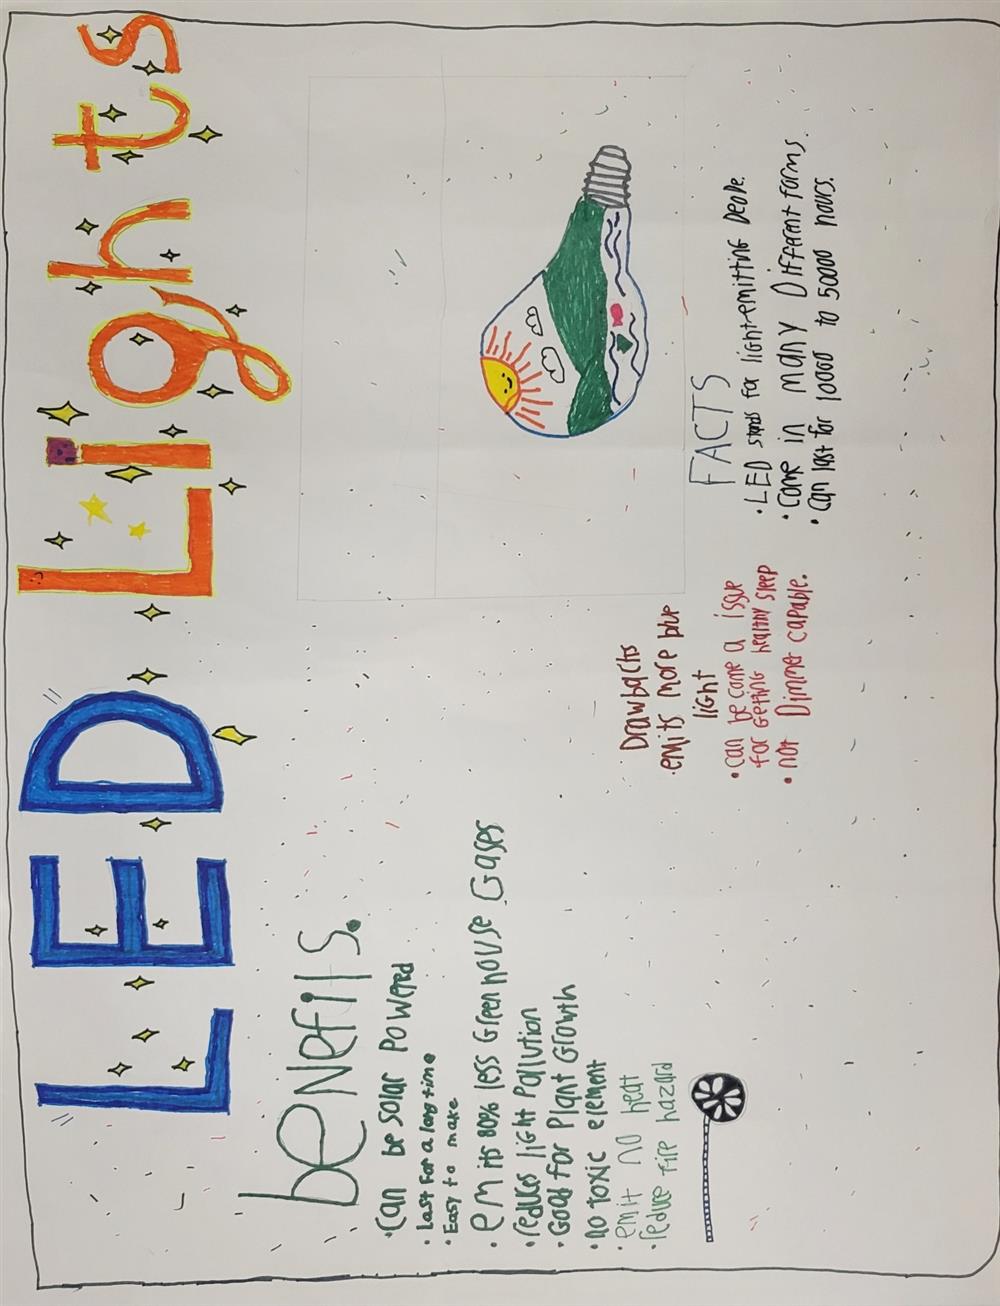 LED Lights
beNefits.
• Can be Solar Powered
• Last for a long time
• Easy to make
• emits 80% less Green house Gases
• reduces light Pollution
• Good for Plant Growth
• no toxic element
• emit no heat
• reduce fire hazard
Drawbacks
• emits more blue
light
• can be come a issue
for getting healthy sleep
• not Dimmer capable.
FACTS
• LED stands for light-emitting Deode.
• Come in many Different forms.
• Can last for 10000 to 50000 hours.